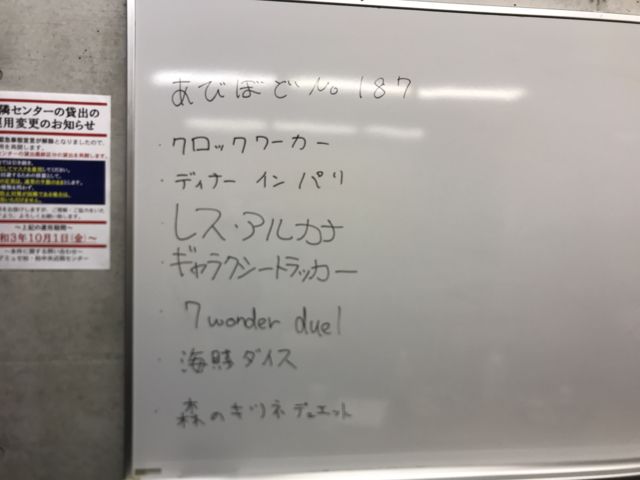 あびぼど No 187
・クロックワーカー
・ディナー イン パリ
・レス・アルカナ
・ギャラクシートラッカー
・7 wonder duel
・海賊ダイス
・森のキツネデュエット
隣センターの貸出の
運用変更のお知らせ
～上記の運用期間～
和3年10月1日(金)～